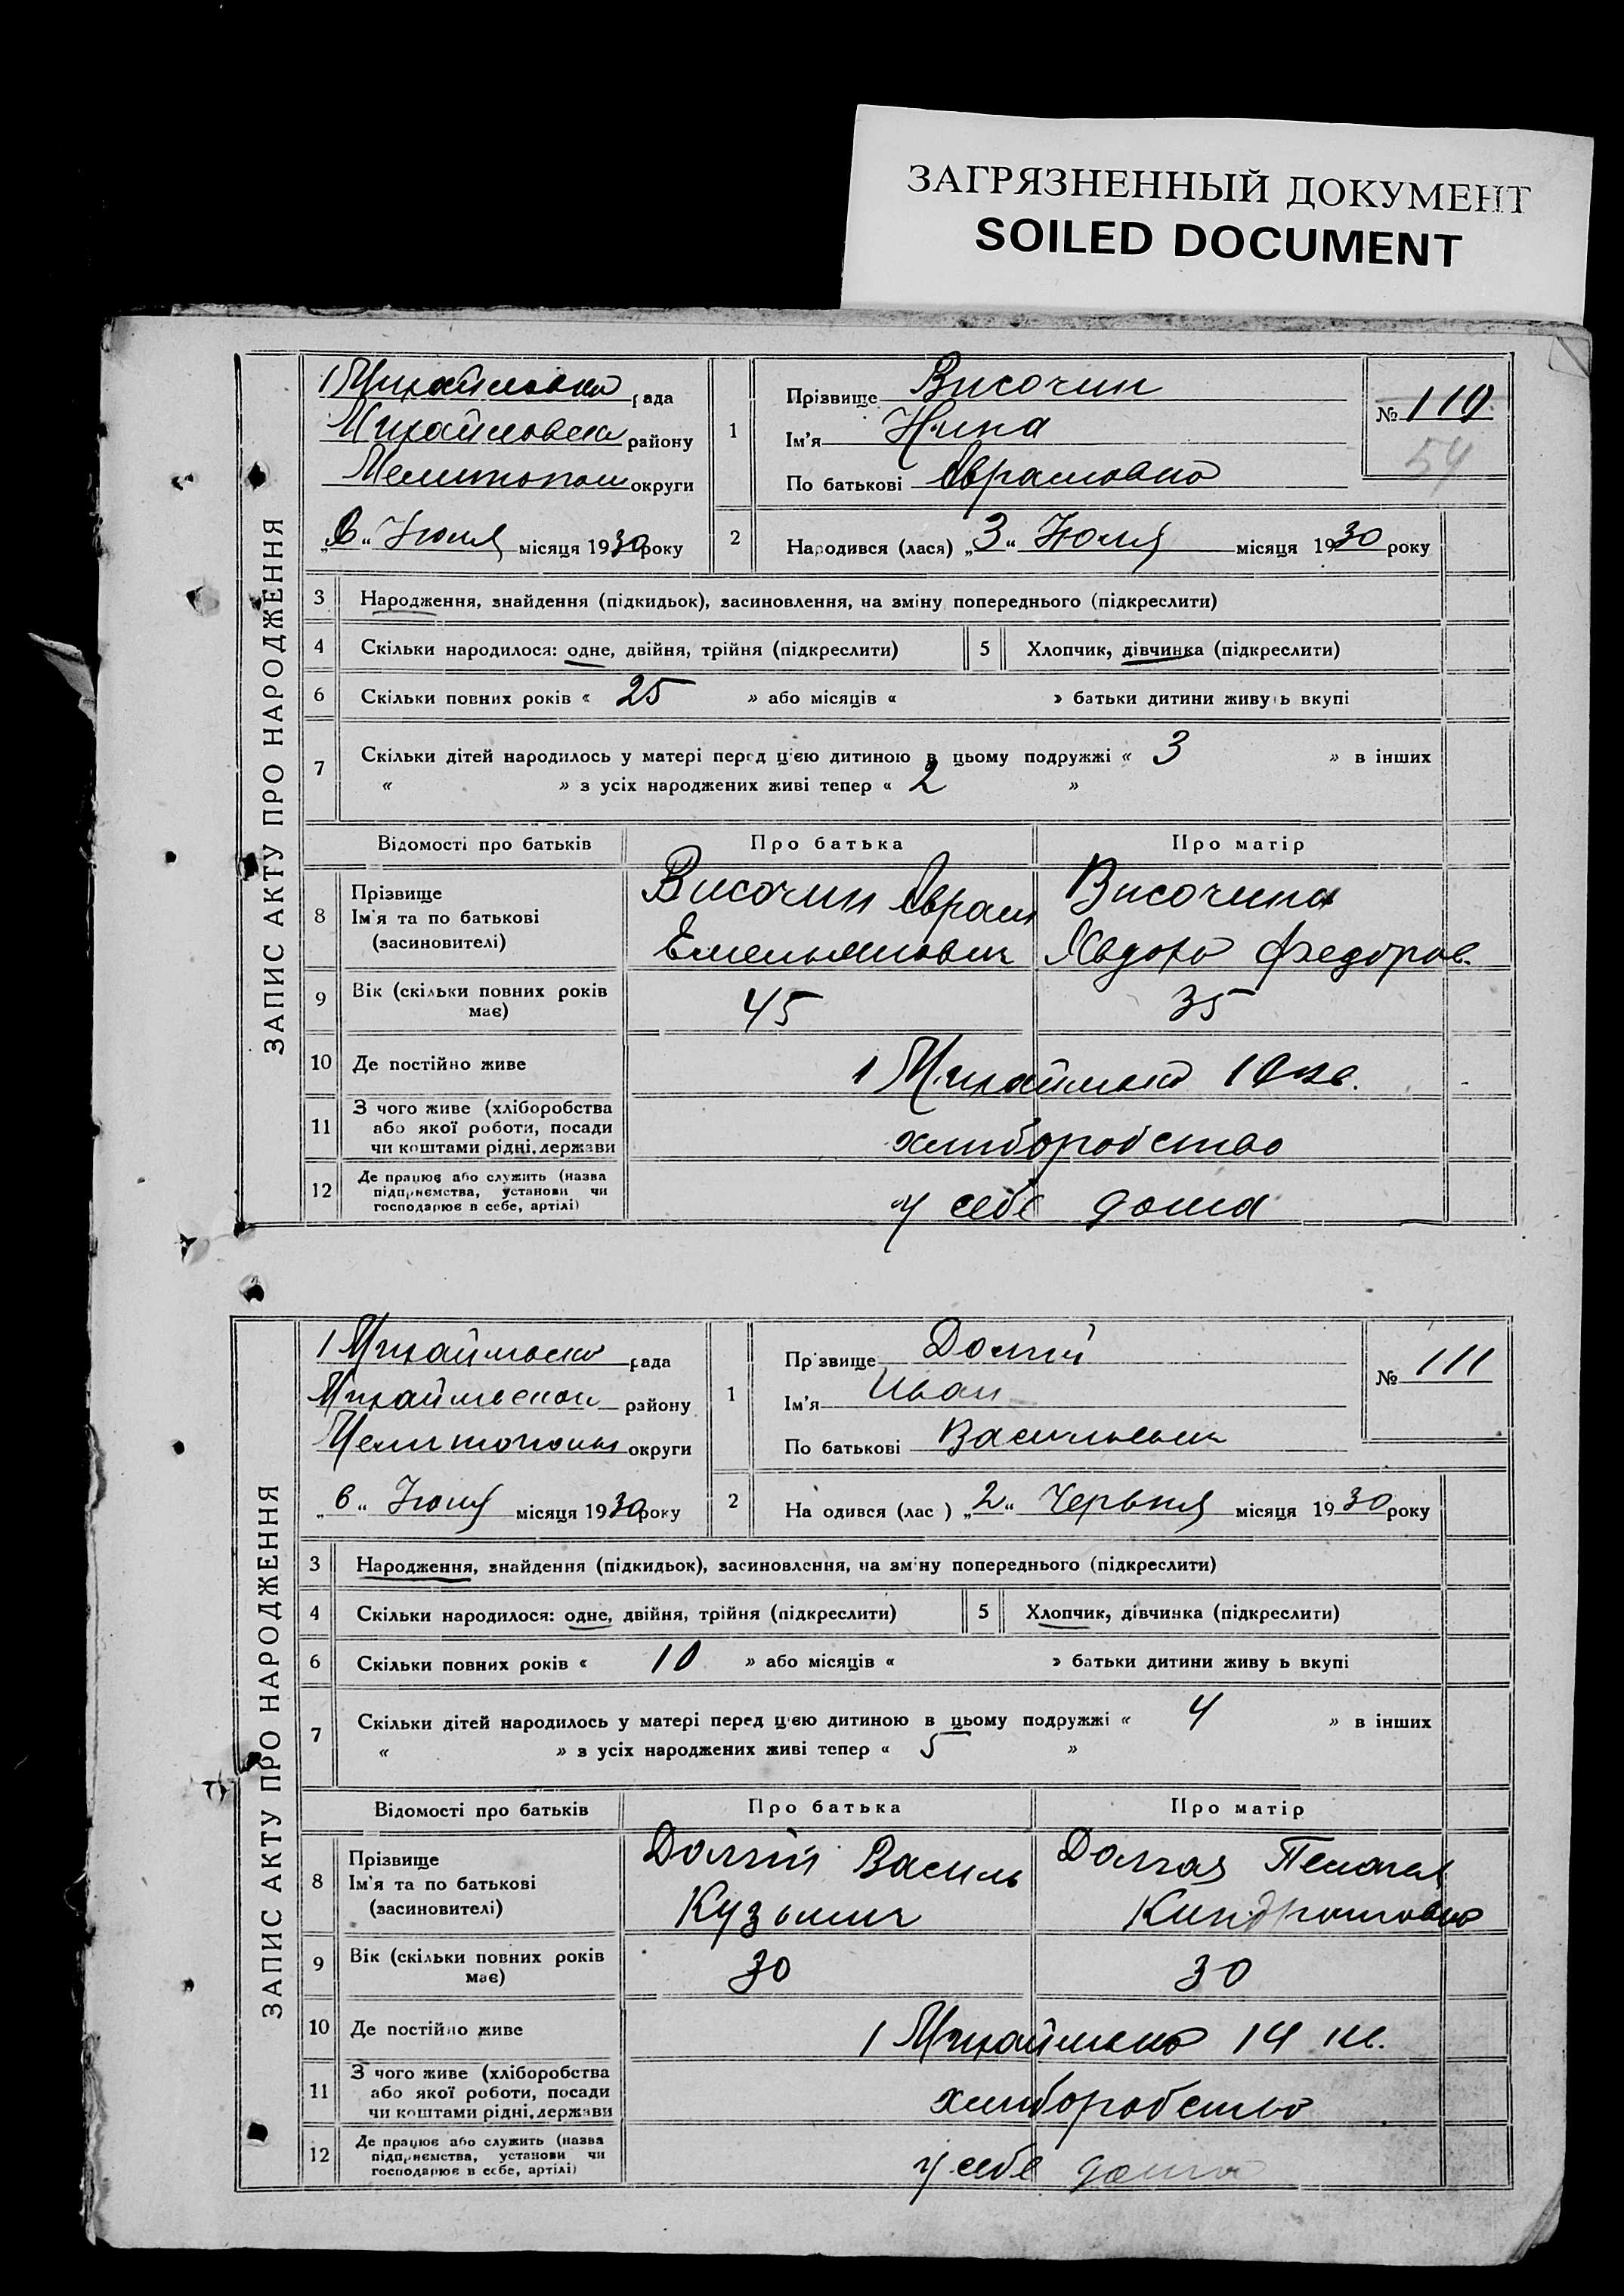 ЗАГРЯЗНЕННЫЙ ДОКУМЕНТ
SOILED DOCUMENT
ЗАПИС АКТУ ПРО НАРОДЖЕННЯ
1 Михайловка рада
району
округи
„6“ Июля місяця 1930 року
1
Прізвище Височин
Ім'я Нина
По батькові Аврамовна
№ 110
54
2
Народився (лася) „3“ Июля місяця 1930 року
3 Народження, знайдення (підкидьок), засиновлення, на зміну попереднього (підкреслити)
4 Скільки народилося: одне, двійня, трійня (підкреслити)
5 Хлопчик, дівчинка (підкреслити)
6 Скільки повних років « 25 » або місяців « » батьки дитини живуть вкупі
7 Скільки дітей народилось у матері перед цією дитиною в цьому подружжі « 3 » в інших
« » з усіх народжених живі тепер « 2 »
Відомості про батьків Про батька Про матір
8 Прізвище
Ім'я та по батькові
(засиновителі)
Височин Аврам
Емельянович
Височина
Явдоха Федоров.
9 Вік (скільки повних років
має)
45 35
10 Де постійно живе
1 кв.
11 З чого живе (хліборобства
або якої роботи, посади
чи коштами рідні, держави
хлиборобство
12 Де працює або служить (назва
підприємства, установи чи
господарює в себе, артілі)
у себе дома
ЗАПИС АКТУ ПРО НАРОДЖЕННЯ
1 рада
району
округи
„6“ Июля місяця 1930 року
1
Прізвище Долгий
Ім'я Иван
По батькові Васильевич
№ 111
2
На одився (лас ) „2“ Червня місяця 1930 року
3 Народження, знайдення (підкидьок), засиновлення, на зміну попереднього (підкреслити)
4 Скільки народилося: одне, двійня, трійня (підкреслити)
5 Хлопчик, дівчинка (підкреслити)
6 Скільки повних років « 10 » або місяців « » батьки дитини живу ь вкупі
7 Скільки дітей народилось у матері перед цією дитиною в цьому подружжі « 4 » в інших
« » з усіх народжених живі тепер « 5 »
Відомості про батьків Про батька Про матір
8 Прізвище
Ім'я та по батькові
(засиновителі)
Долгий Василь
Кузьмич
Долгая Пелагея
Киндратовна
9 Вік (скільки повних років
має)
30 30
10 Де постійно живе
1 14 кв.
11 З чого живе (хліборобства
або якої роботи, посади
чи коштами рідні, держави
хлиборобство
12 Де працює або служить (назва
підприємства, установи чи
господарює в себе, артілі)
у себе дома